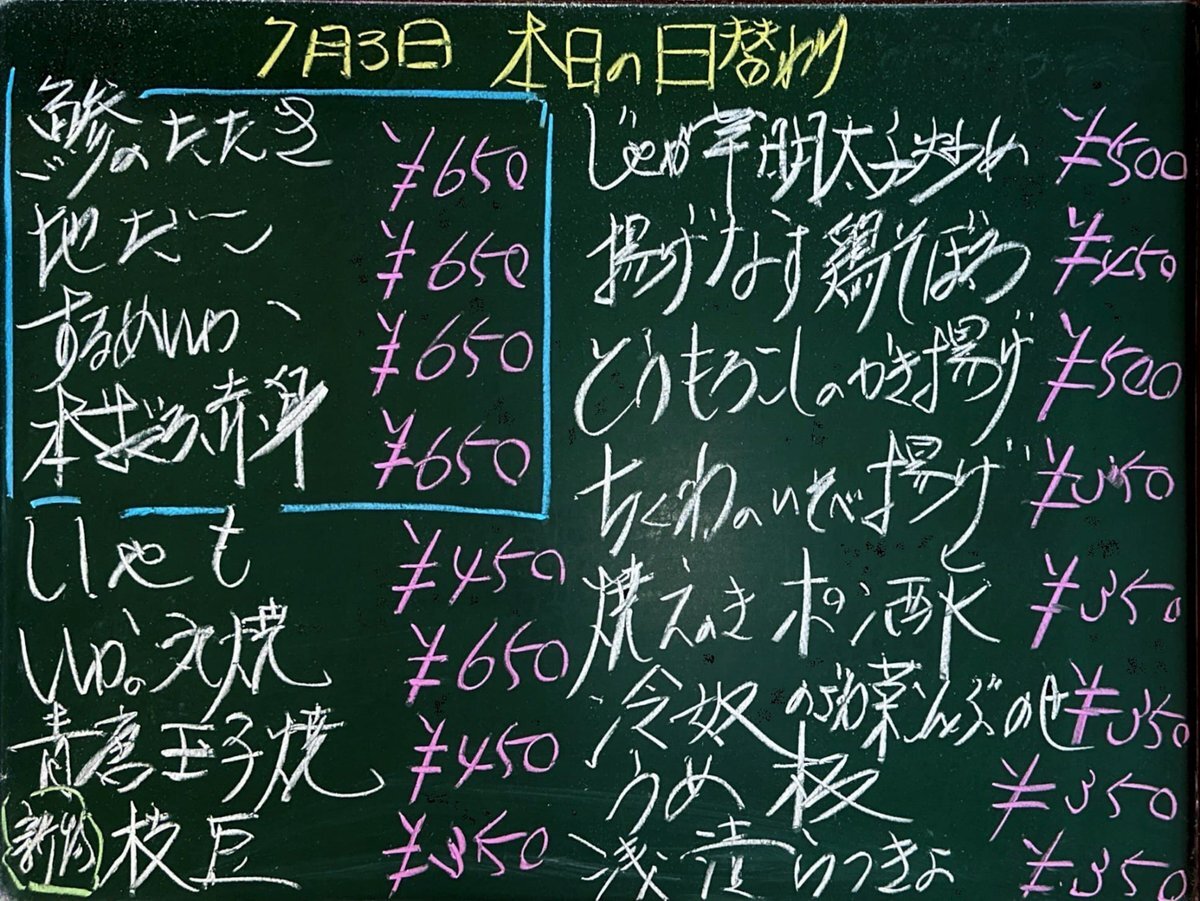 7月3日 本日の日替わり
鯵のたたき ¥650
地だこ ¥650
するめいか ¥650
本まぐろ赤身 ¥650
ししゃも ¥450
いかの丸焼 ¥650
青唐玉子焼 ¥450
新物 枝豆 ¥350
じゃが芋明太子炒め ¥500
揚げなす鶏そぼろ ¥450
とうもろこしのかき揚げ ¥500
ちくわのいそべ揚げ ¥350
焼えのき ¥350
冷奴 のざわ菜こんぶのせ ¥350
うめ板 ¥350
浅漬らっきょ ¥350